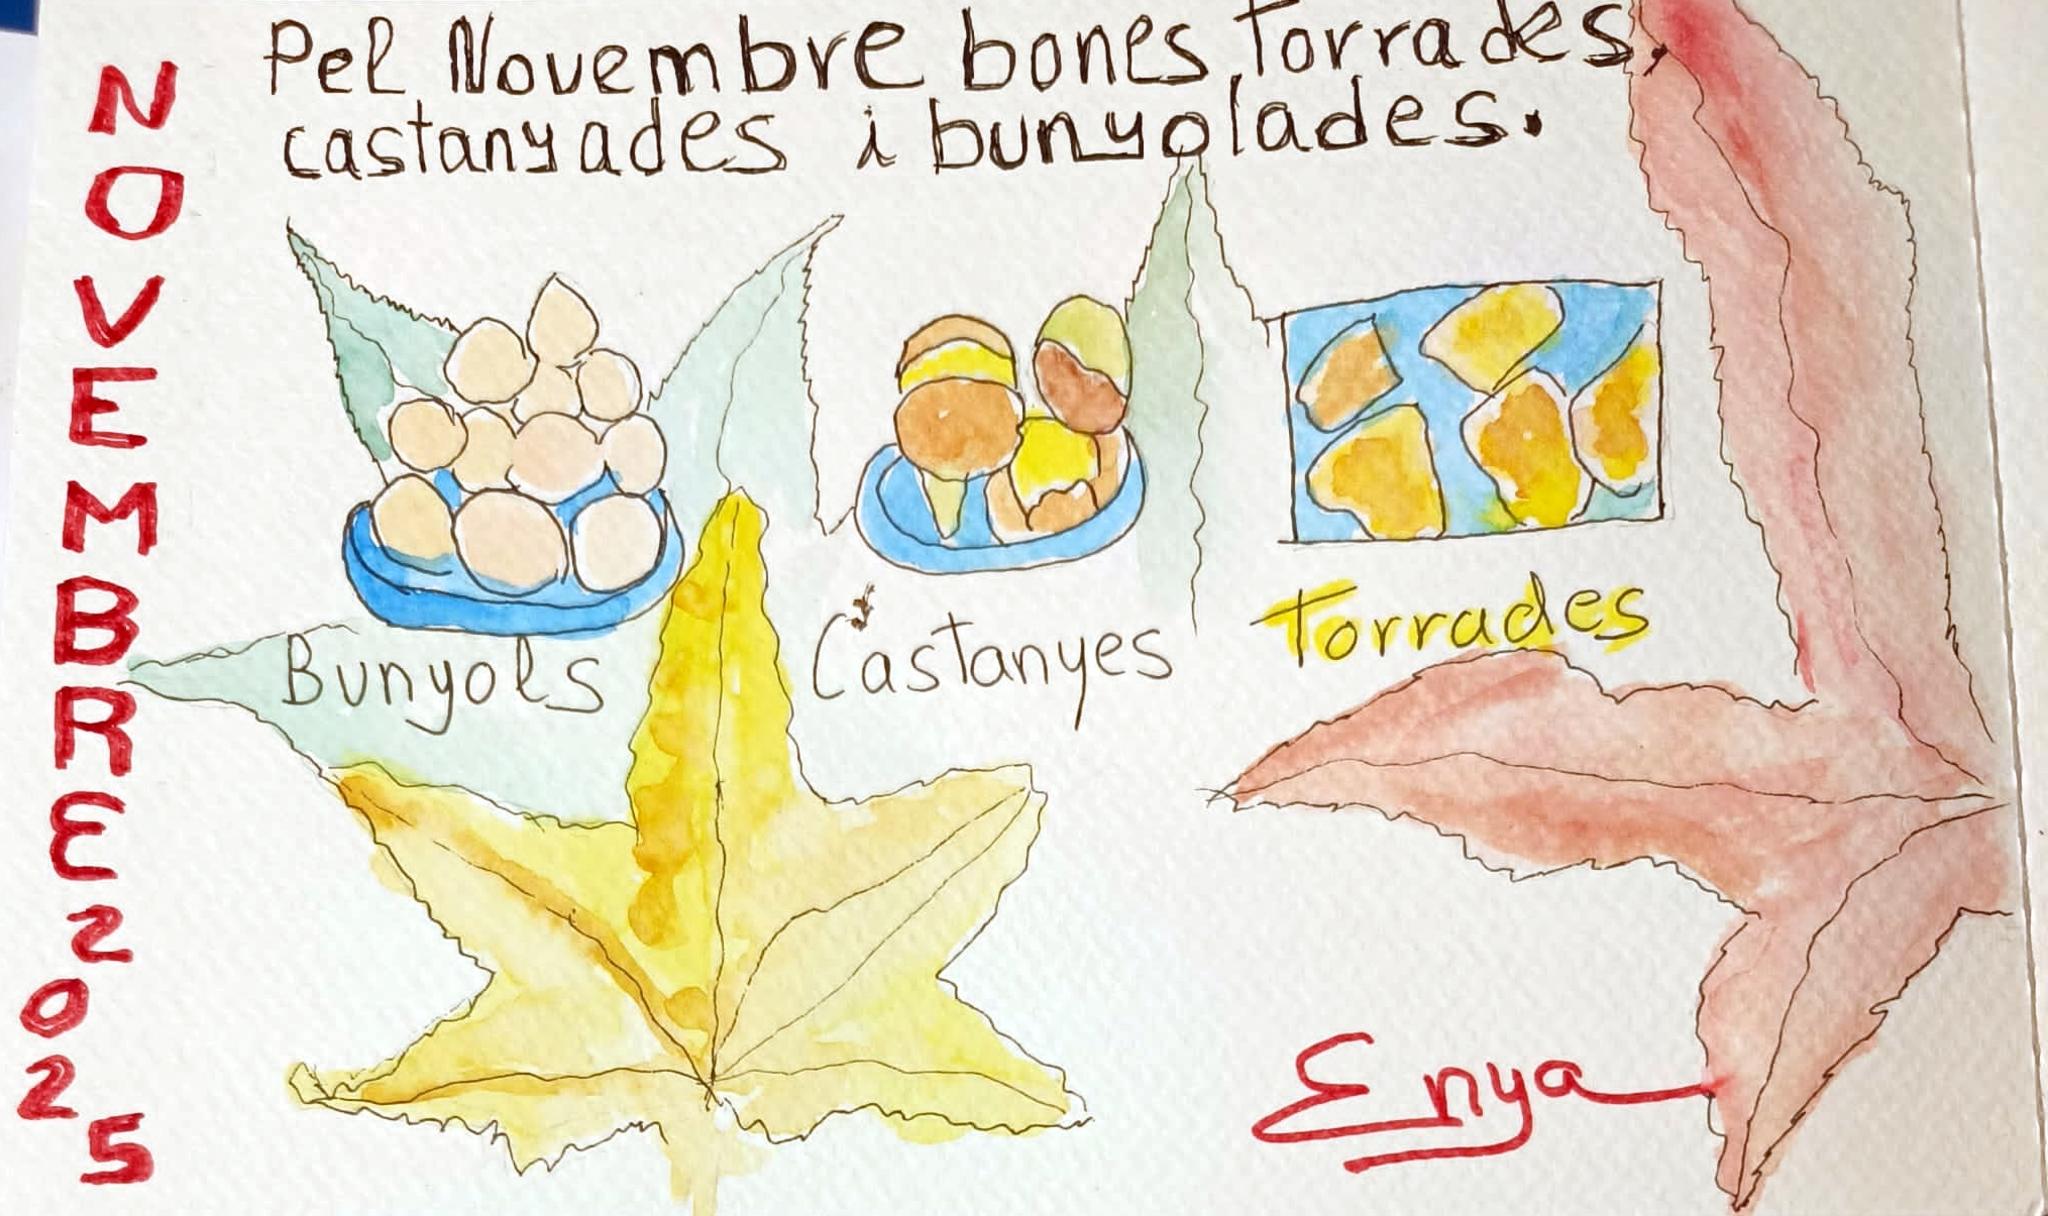 Pel Novembre bones torrades,
castanyades i bunyolades.
NOVEMBRE 2025
Bunyols
Castanyes
Torrades
Enya